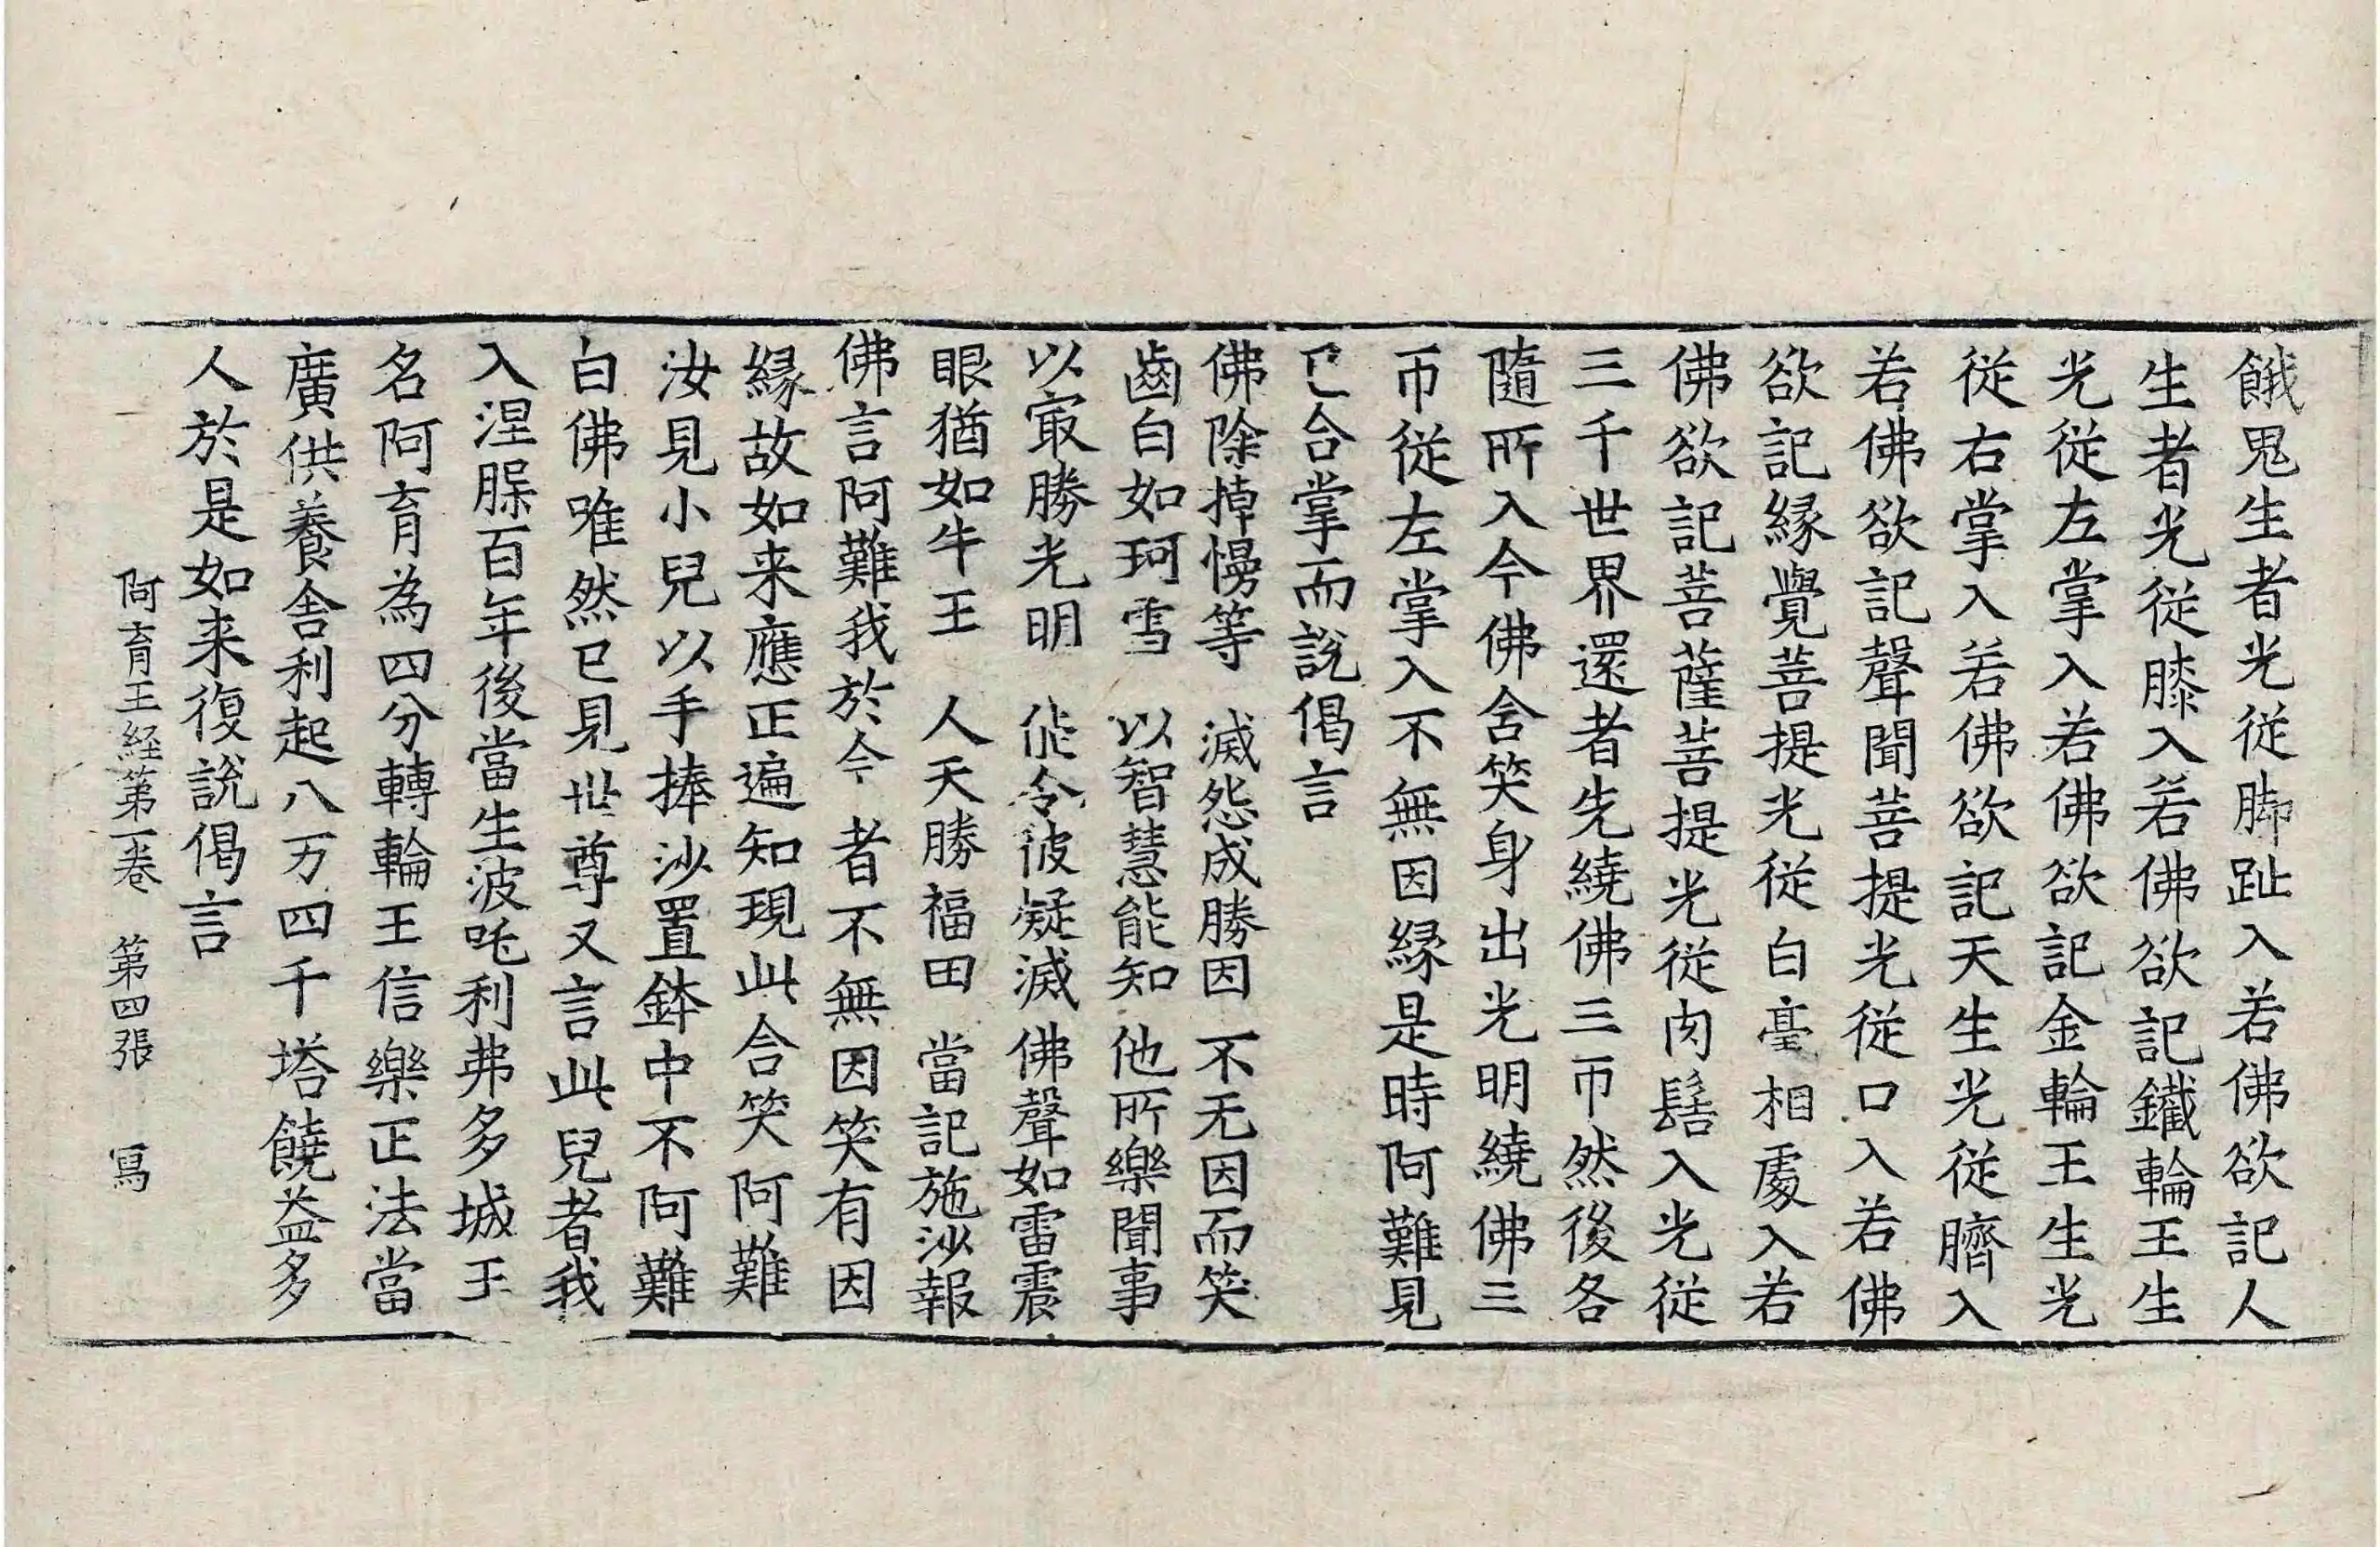 餓鬼生者光従脚趾入若佛欲記人
生者光従膝入若佛欲記鐵輪王生
光従左掌入若佛欲記金輪王生光
従右掌入若佛欲記天生光従臍入
若佛欲記聲聞菩提光従口入若佛
欲記縁覺菩提光従白毫相處入若
佛欲記菩薩菩提光従肉髻入光従
三千世界還者先繞佛三帀然後各
隨所入今佛含笑身出光明繞佛三
帀従左掌入不無因縁是時阿難見
已合掌而說偈言
佛除掉慢等　滅怨成勝因　不无因而笑
齒白如珂雪　以智慧能知　他所樂聞事
以寂勝光明　能令彼疑滅　佛聲如雷震
眼猶如牛王　人天勝福田　當記施沙報
佛言阿難我於今者不無因笑有因
縁故如来應正遍知現此含笑阿難
汝見小兒以手捧沙置鉢中不阿難
白佛唯然已見世尊又言此兒者我
入涅槃百年後當生波吒利弗多城王
名阿育為四分轉輪王信樂正法當
廣供養舍利起八万四千塔饒益多
人於是如来復說偈言
阿育王経第一卷　第四張　寫